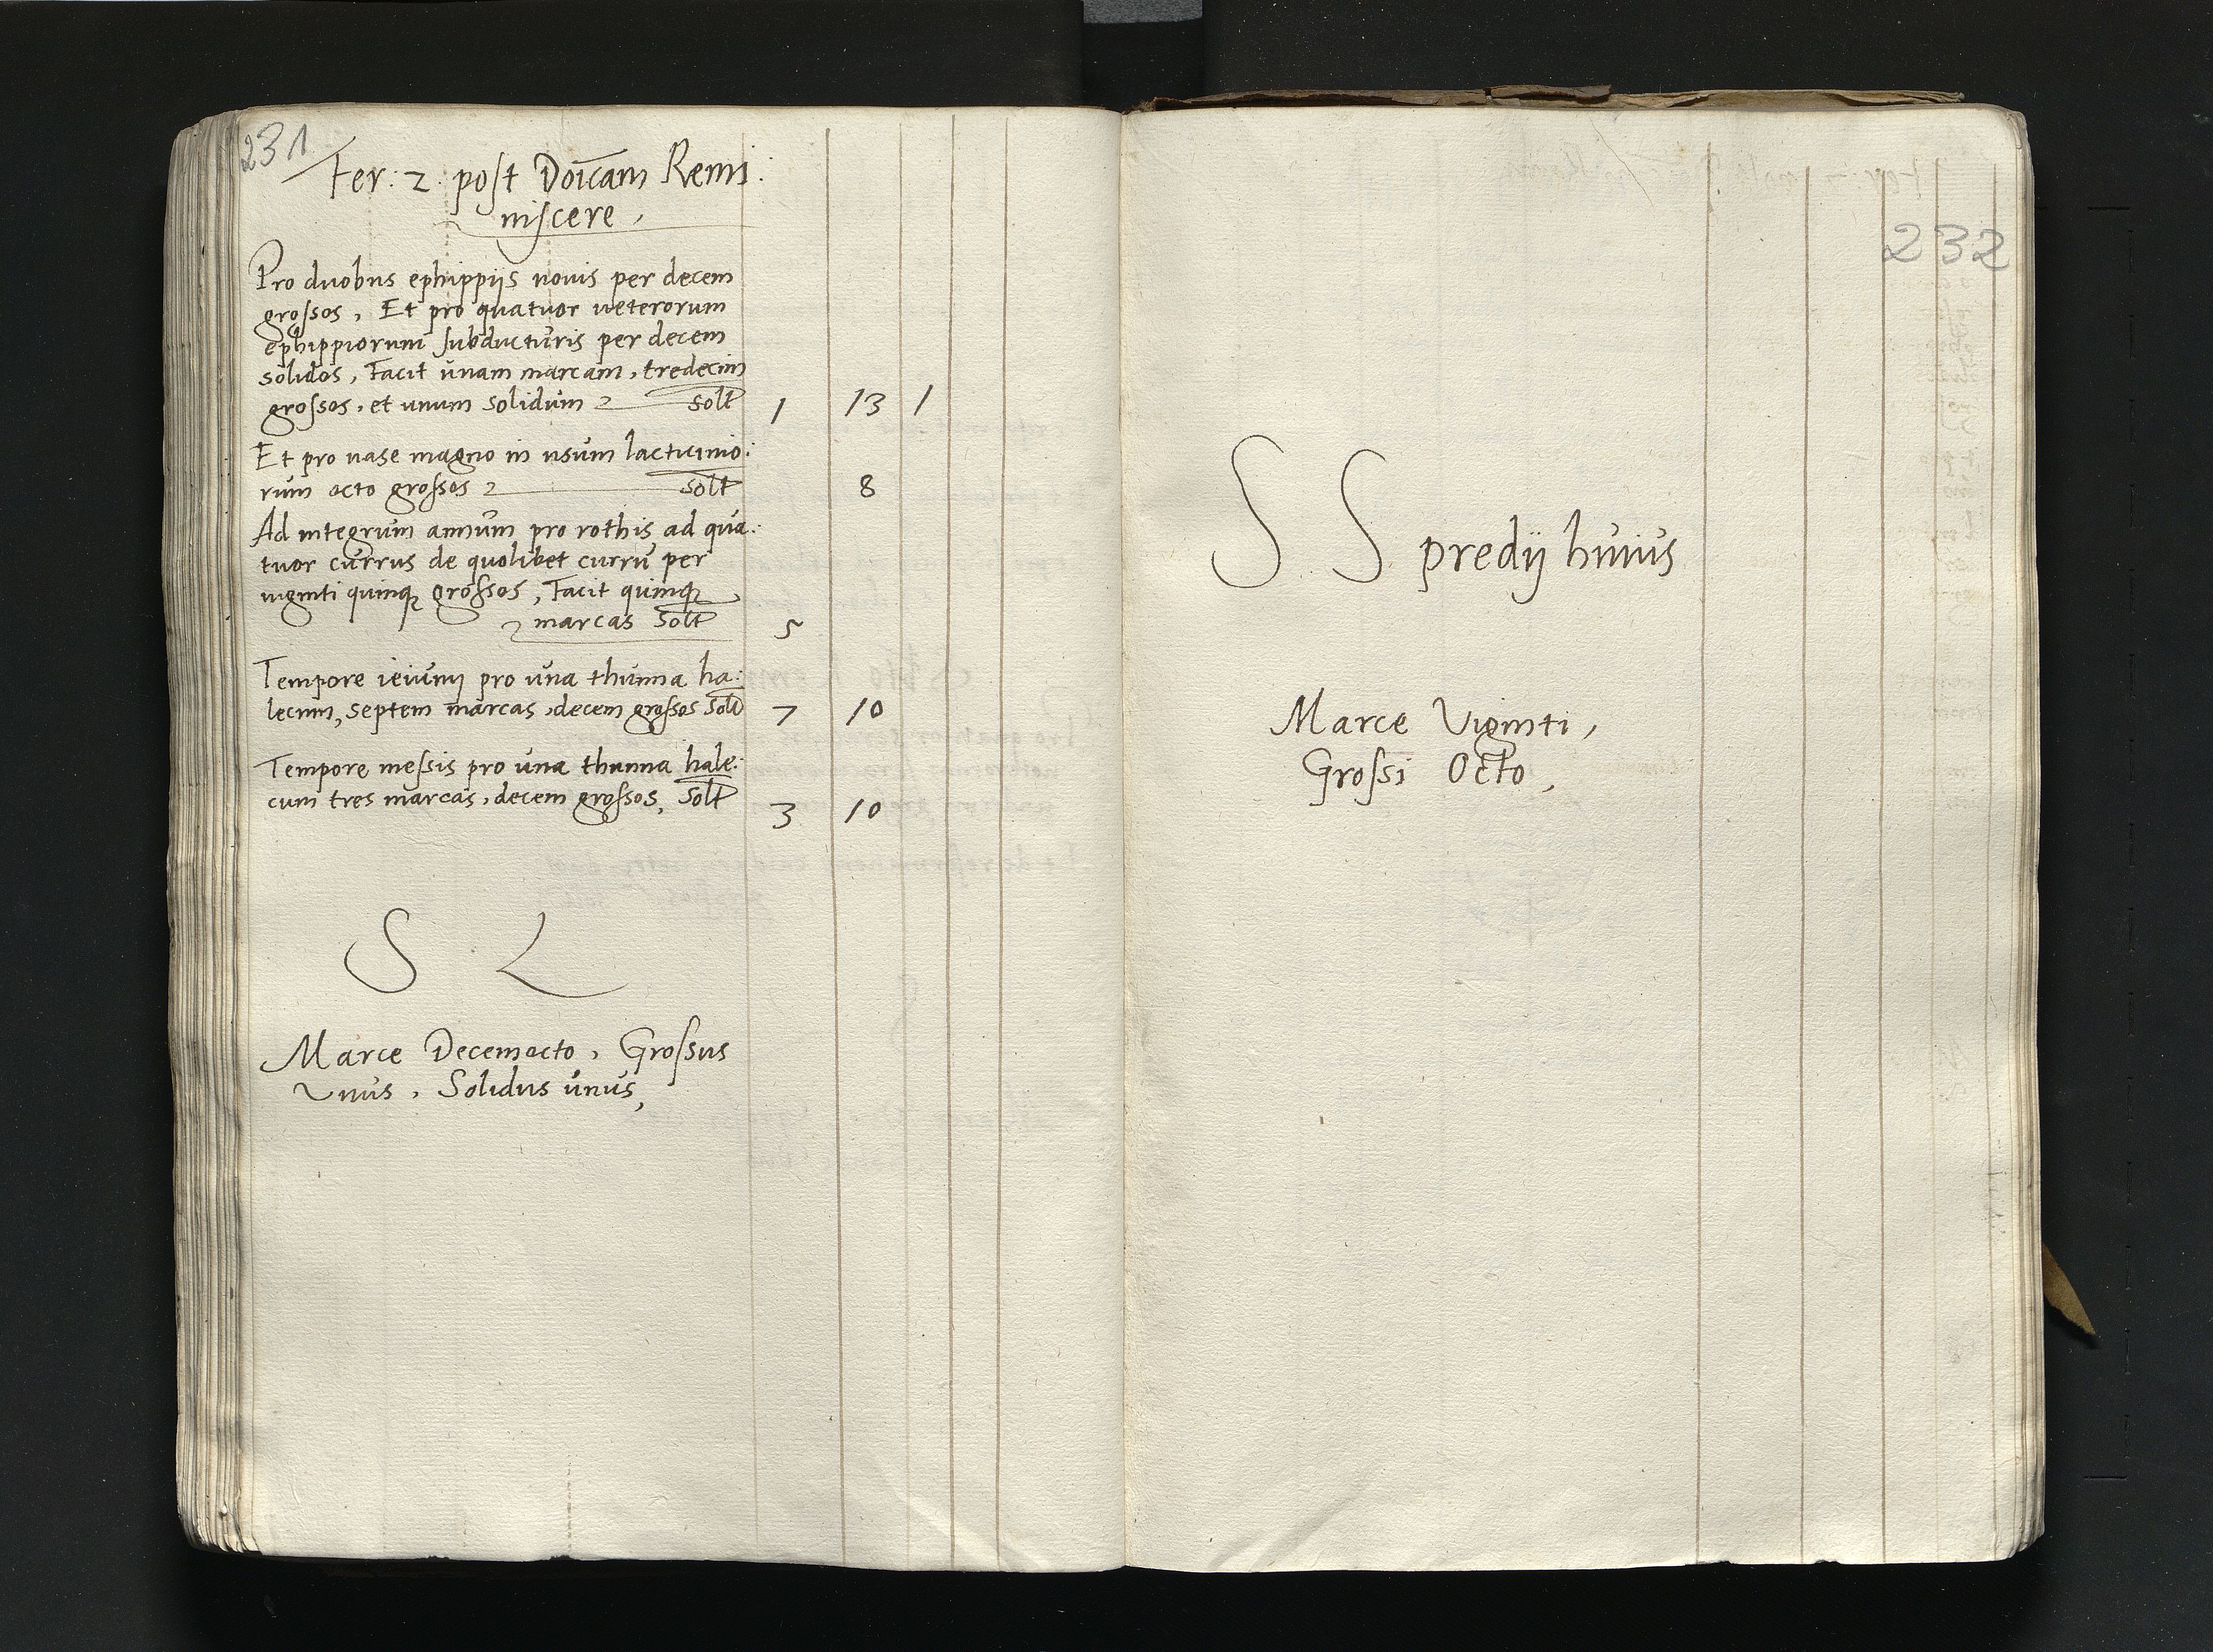 231
Fer: 2. post Doicam Remi:
niscere,
Pro duobus ephippijs nouis per decem
grossos, Et pro quatuor ueterorum
ephippiorum subducturis per decem
solidos, Facit unam marcam, tredecim
grossos, et unum solidum solt 1 13 1
Et pro uase magno in usum lacticinio:
rum octo grossos solt 8
Ad integrum annum pro rothis ad qua:
tuor currus de quolibet curru per
viginti quinq grossos, Facit quinq
marcas solt 5
Tempore ieiunij pro una thunna ha:
lecum, septem marcas, decem grossos solt 7 10
Tempore messis pro una thunna hale:
cum tres marcas, decem grossos, solt 3 10
S L
Marce Decemocto, Grossus
Vnus, Solidus unus,
232
S S predij huius
Marce Viginti,
Grossi Octo,